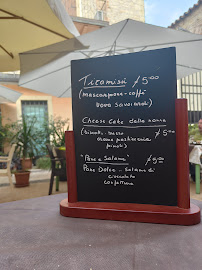 Tiramisú €5,00
(mascarpone - caffè
uova savoiardi)
Cheese Cake della nonna
(biscotti - burro €5,00
crema pasticcera
pinoli)
"Pane e Salame" €5,00
Pane Dolce - Salame di
cioccolato
confettura